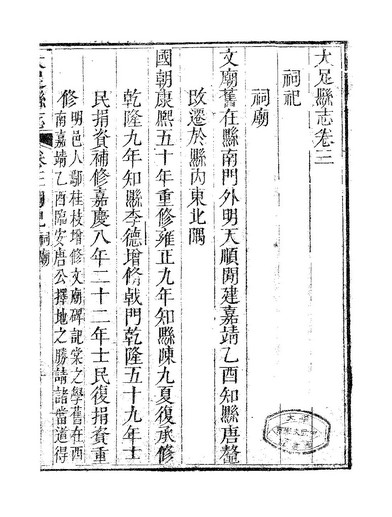 大足縣志卷三
祠祀
祠廟
文廟舊在縣南門外明天順間建嘉靖乙酉知縣唐鼇
改遷於縣內東北隅
國朝康熙五十年重修雍正九年知縣陳九夏復承修
乾隆九年知縣李德增脩戟門乾隆五十九年士
民捐資補修嘉慶八年二十二年士民復捐資重
修明邑人鄢桂枝增修文廟碑記棠之學舊在酉
南嘉靖乙酉臨安唐公擇地之勝請諸當道得
大足縣志 卷三 祠祀 祠廟